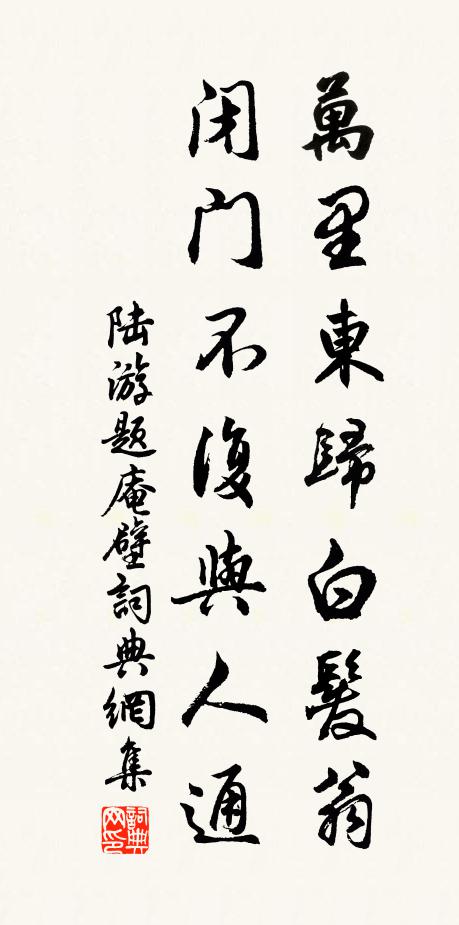 萬里東歸白髮翁
闭门不復與人通
陆游题庵壁詞典網集
詞典网印